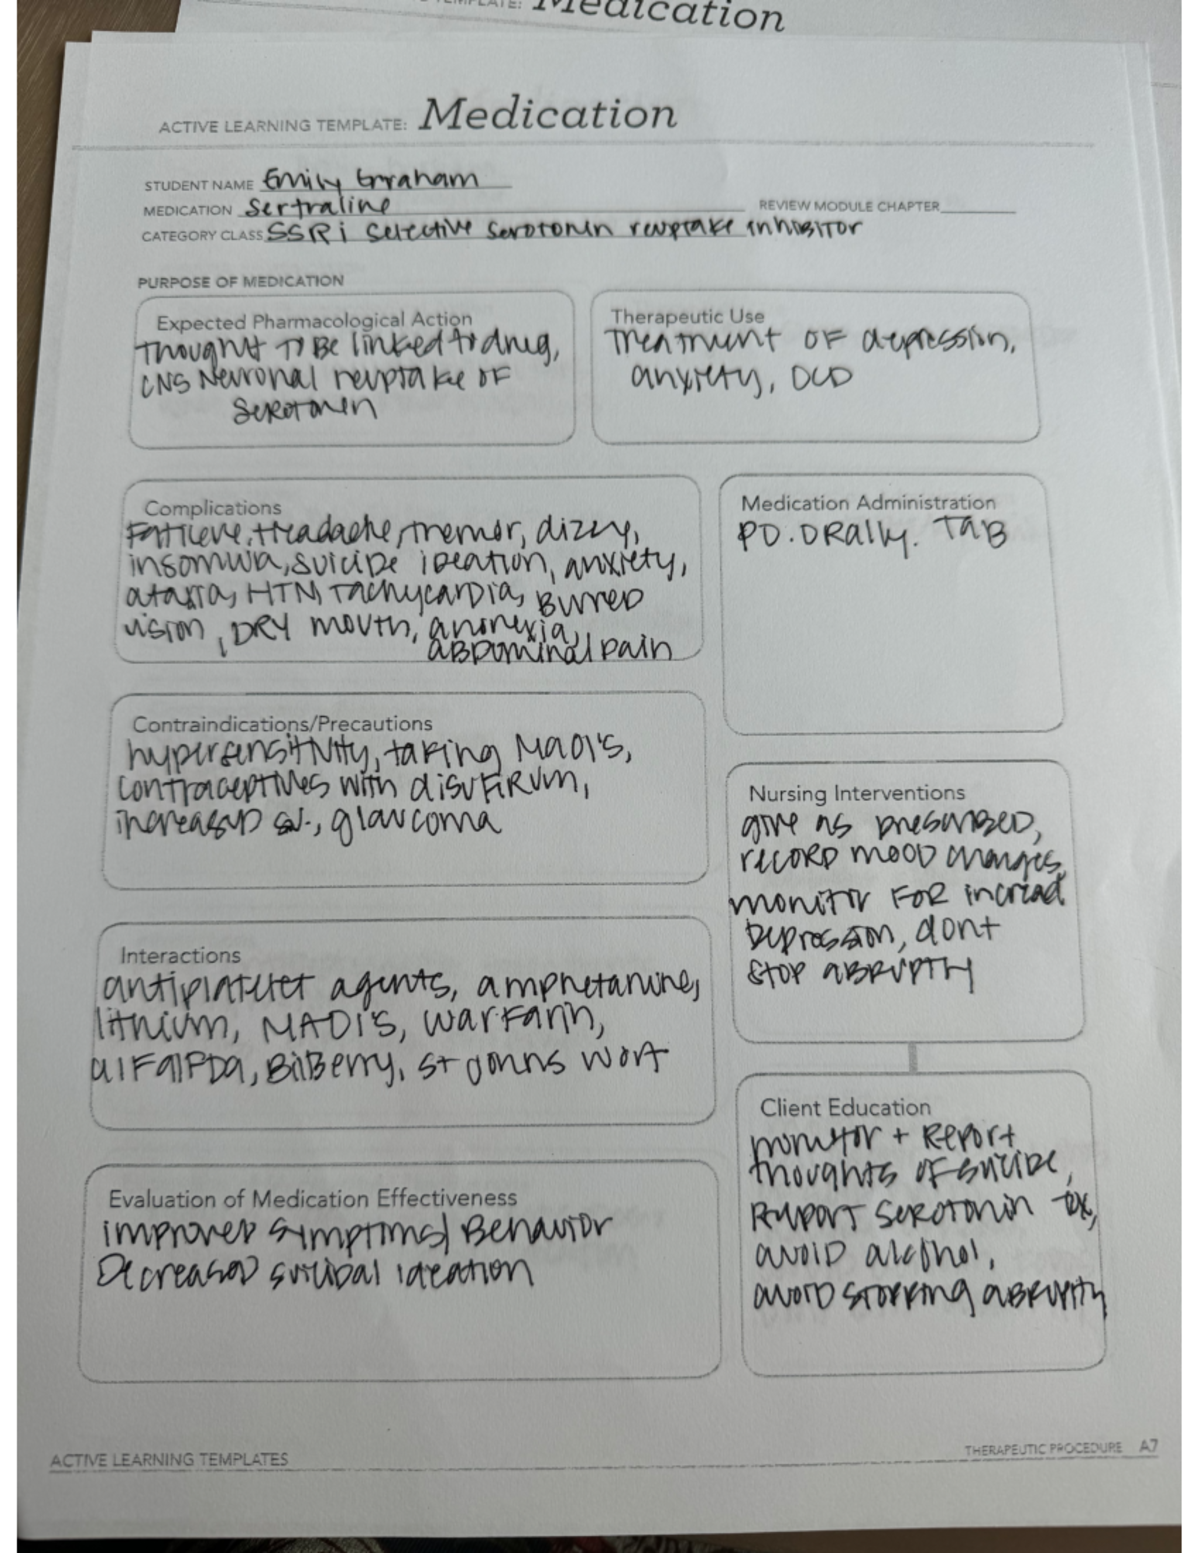 TEMPLATE: Medication
ACTIVE LEARNING TEMPLATE: Medication
STUDENT NAME Emily Graham
MEDICATION Sertraline
REVIEW MODULE CHAPTER
CATEGORY CLASS SSRi Selective serotonin reuptake inhibitor
PURPOSE OF MEDICATION
Expected Pharmacological Action
Thought to be linked to drug,
CNS Neuronal reuptake of
serotonin
Therapeutic Use
Treatment of depression,
anxiety, OCD
Complications
Fatigue, Headache, tremor, dizzy,
insomnia, suicide ideation, anxiety,
ataxia, HTN, tachycardia, Burred
vision, DRY mouth, anorexia,
abdominal pain
Medication Administration
PO. Orally. TAB
Contraindications/Precautions
hypersensitivity, taking MAOI's,
contraceptives with disufirum,
increased, glaucoma
Nursing Interventions
give as prescribed,
record mood changes,
monitor for increased
Depression, dont
stop abruptly
Interactions
antiplatelet agents, amphetamine,
lithium, MAOI's, warfarin,
alfalfa, Bilberry, st johns wort
Client Education
monitor + Report
thoughts of suicide,
Report serotonin
avoid alcohol,
avoid stopping abruptly
Evaluation of Medication Effectiveness
improved symptoms/ Behavior
Decreased suicidal ideation
ACTIVE LEARNING TEMPLATES
THERAPEUTIC PROCEDURE A7